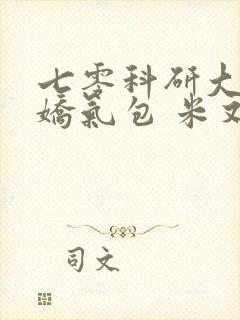 七零科研大
嬌氣包 米
司文